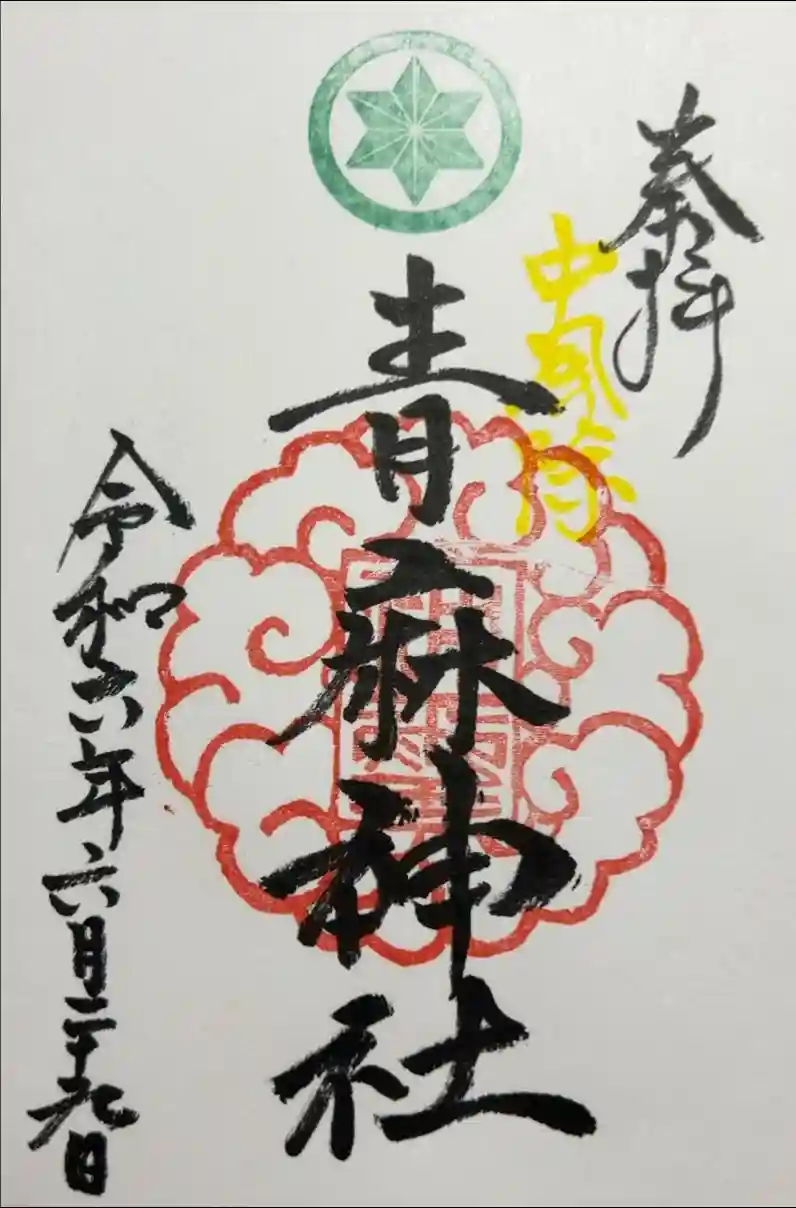 奉拝
中風除
青麻神社
令和六年六月二十九日